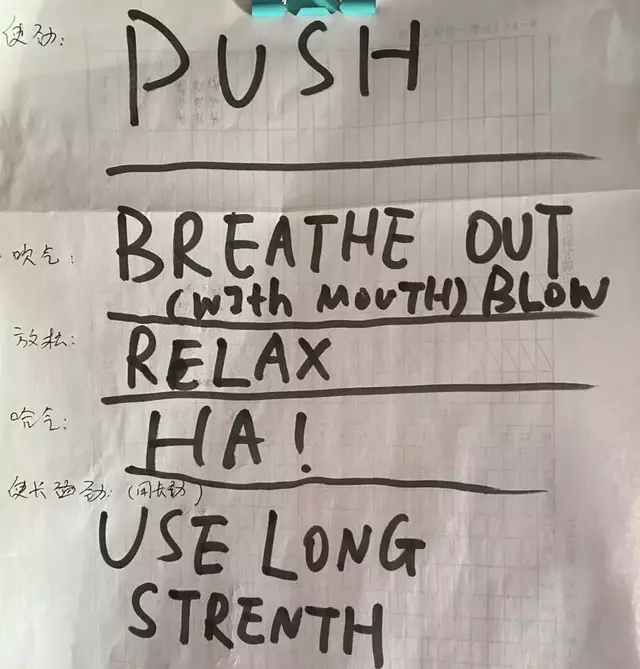 使劲: PUSH
吹气: BREATHE OUT
(WITH MOUTH) BLOW
放松: RELAX
哈气: HA!
使长劲: (用长劲)
USE LONG
STRENTH